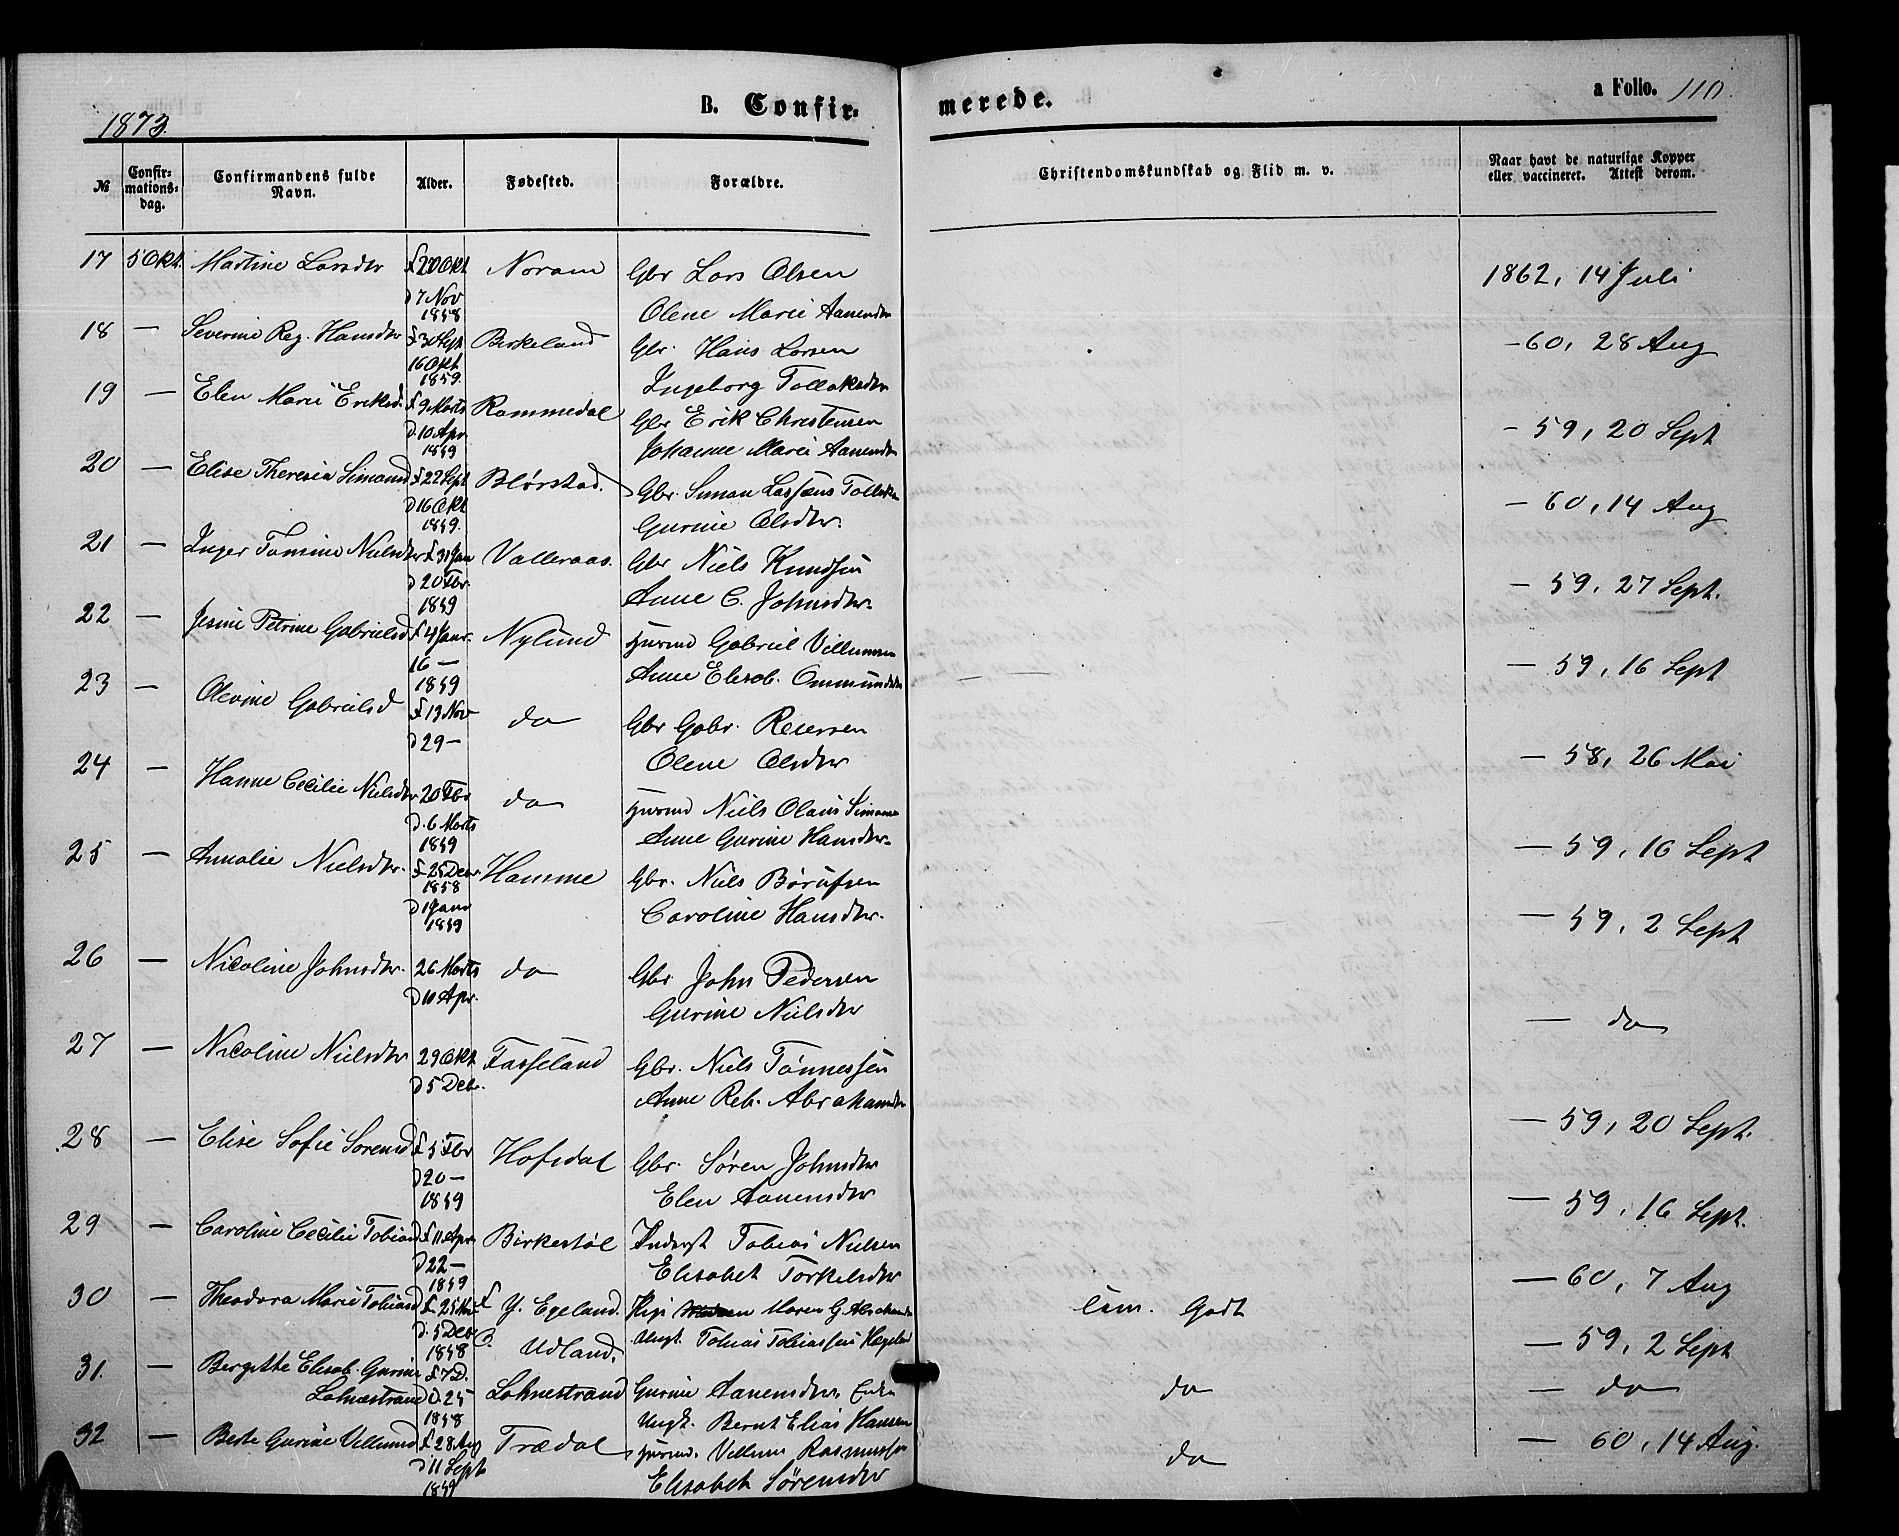 1873.
B. Confir-
merede.
a Folio. 110.
№
Confir-
mations-
dag.
Confirmandens fulde
Navn.
Alder.
Fødested.
Forældre.
Christendomskundskab og Flid m. v.
Naar havt de naturlige Kopper
eller vaccineret. Attest derom.
17 5 Okt. Martine Larsdtr f 20 Okt Noram Gbr Lars Olsen 1862, 14 Juli
d 7 Nov
1858 Olene Marie Aanensdtr
18 — Severine Reg. Hansdtr f 30 Sept Birkeland Gbr. Hans Larsen — 60, 28 Aug
16 Okt
1859. Ingeborg Tollaksdtr
19 — Elen Marie Eriksd. f 9 Marts Rammedal Gbr Erik Christensen — 59, 20 Sept
d. 10 Apr
1859 Johanne Marie Aanensdtr
20 — Elise Theresia Simonsd f 22 Sept Blørstad. Gbr. Simon — 60, 14 Aug
d 16 Okt
1859. Gurine Olsdtr.
21 — Inger Tomine Nielsdtr f 31 Jan Valleraas. Gbr Niels Knudsen — 59, 27 Sept.
d 20 Fbr.
1859 Anne C. Johnsdtr.
22 — Jesine Petrine Gabrielsd f 4 Janr. Nylund Husmd Gabriel Villumsen — 59, 16 Sept
16 —
1859 Anne Elisab. Ommundsdtr
23 — Olevine Gabrielsd f 13 Nov do Gbr Gabr. Reiersen — 58, 26 Mai
d 29 — Olene Olsdtr
24 — Hanne Cecilie Nielsdtr 20 Fbr do Husmd Niels Olaus Simonsen — 59, 16 Sept
d. 6 Marts
1859 Anne Gurine Hansdtr.
25 — Amalie Nielsdtr. f 25 Decr Hamme Gbr. Niels Børufsen — 59, 2 Sept
1858
d 19 Janr
1859 Caroline Hansdtr.
26 — Nicoline Johnsdtr. 26 Marts do Gbr John Pedersen — do
d 10 Apr. Gurine Nielsdtr
27 — Nicoline Nielsdtr 29 Okt Fasseland Gbr. Niels Tønnessen — 59, 20 Sept.
d 5 Debr. Anne Reb. Abrahamsdtr
28 — Elise Sofie Sørensd f 5 Fbr Hofsdal Gbr. Søren Johnsdtr — 59, 16 Sept.
d 20 —
1859 Elen Aanensdtr
29 — Caroline Cecilie Tobiasd f 11 Apr Birkestøl Inderst Tobias Nielsen — 60, 7 Aug
d 22 —
1859 Elisabet Torkelsdtr
30 — Theodora Marie Tobiasd f. 25 Nov f Y. Egeland. Pige Maren G. Abrahamsdtr Tem. Godt — 59, 2 Sept
d. 5 Decr
1858 B. Udland. Ungk. Tobias Tobiassen Hageland
31. — Bergitte Elisab. Gurine f 7 D. Lohnestrand Gurine Aanensdtr Enke do — do
Lohnestrand d. 25
1858 Ungk. Bernt Elias Hansen
32 — Berte Gurine Villumsd f 28 Aug Trædal Husmd. Villum Rasmussen do — 60, 14 Aug.
d 11 Sept
1859 Elisabet Sørensdtr